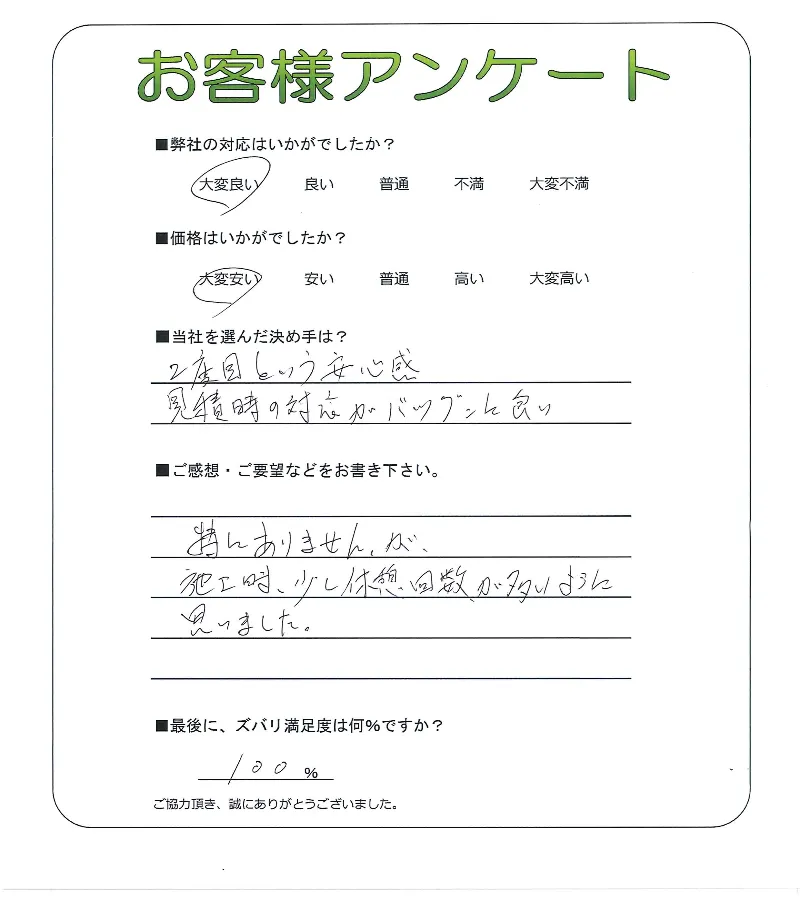 お客様アンケート
■弊社の対応はいかがでしたか？
大変良い 良い 普通 不満 大変不満
■価格はいかがでしたか？
大変安い 安い 普通 高い 大変高い
■当社を選んだ決め手は？
2度目という安心感
見積時の対応がバツグンに良い
■ご感想・ご要望などをお書き下さい。
特にありません、が、
施工時、少し休憩回数が多いように
思いました。
■最後に、ズバリ満足度は何%ですか？
100 %
ご協力頂き、誠にありがとうございました。